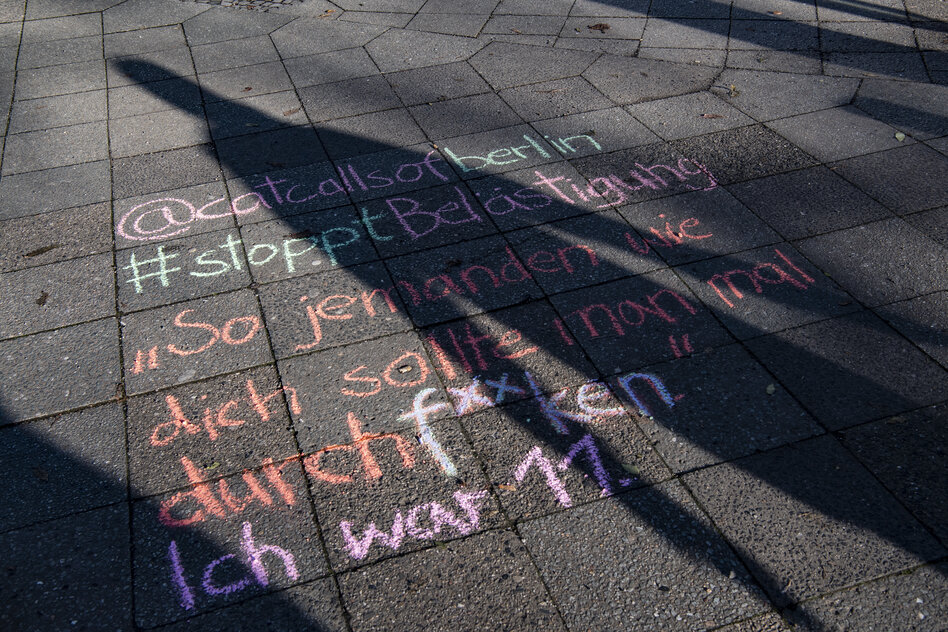 @catcallsofberlin
#stopptBelästigung
„So jemanden wie
dich sollte man mal
durchfxxken"
Ich war 11